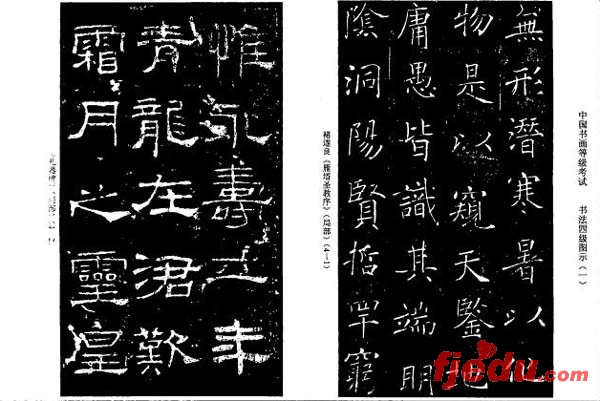 中国书画等级考试 书法四级图示(一)
無形潛寒暑以化
物是以窺天鑒地
庸愚皆識其端明
陰洞陽賢哲罕窮
褚遂良《雁塔圣教序》(局部)(4-1)
惟永壽二年
青龍在涒歎
霜月之靈皇
fjedu.com